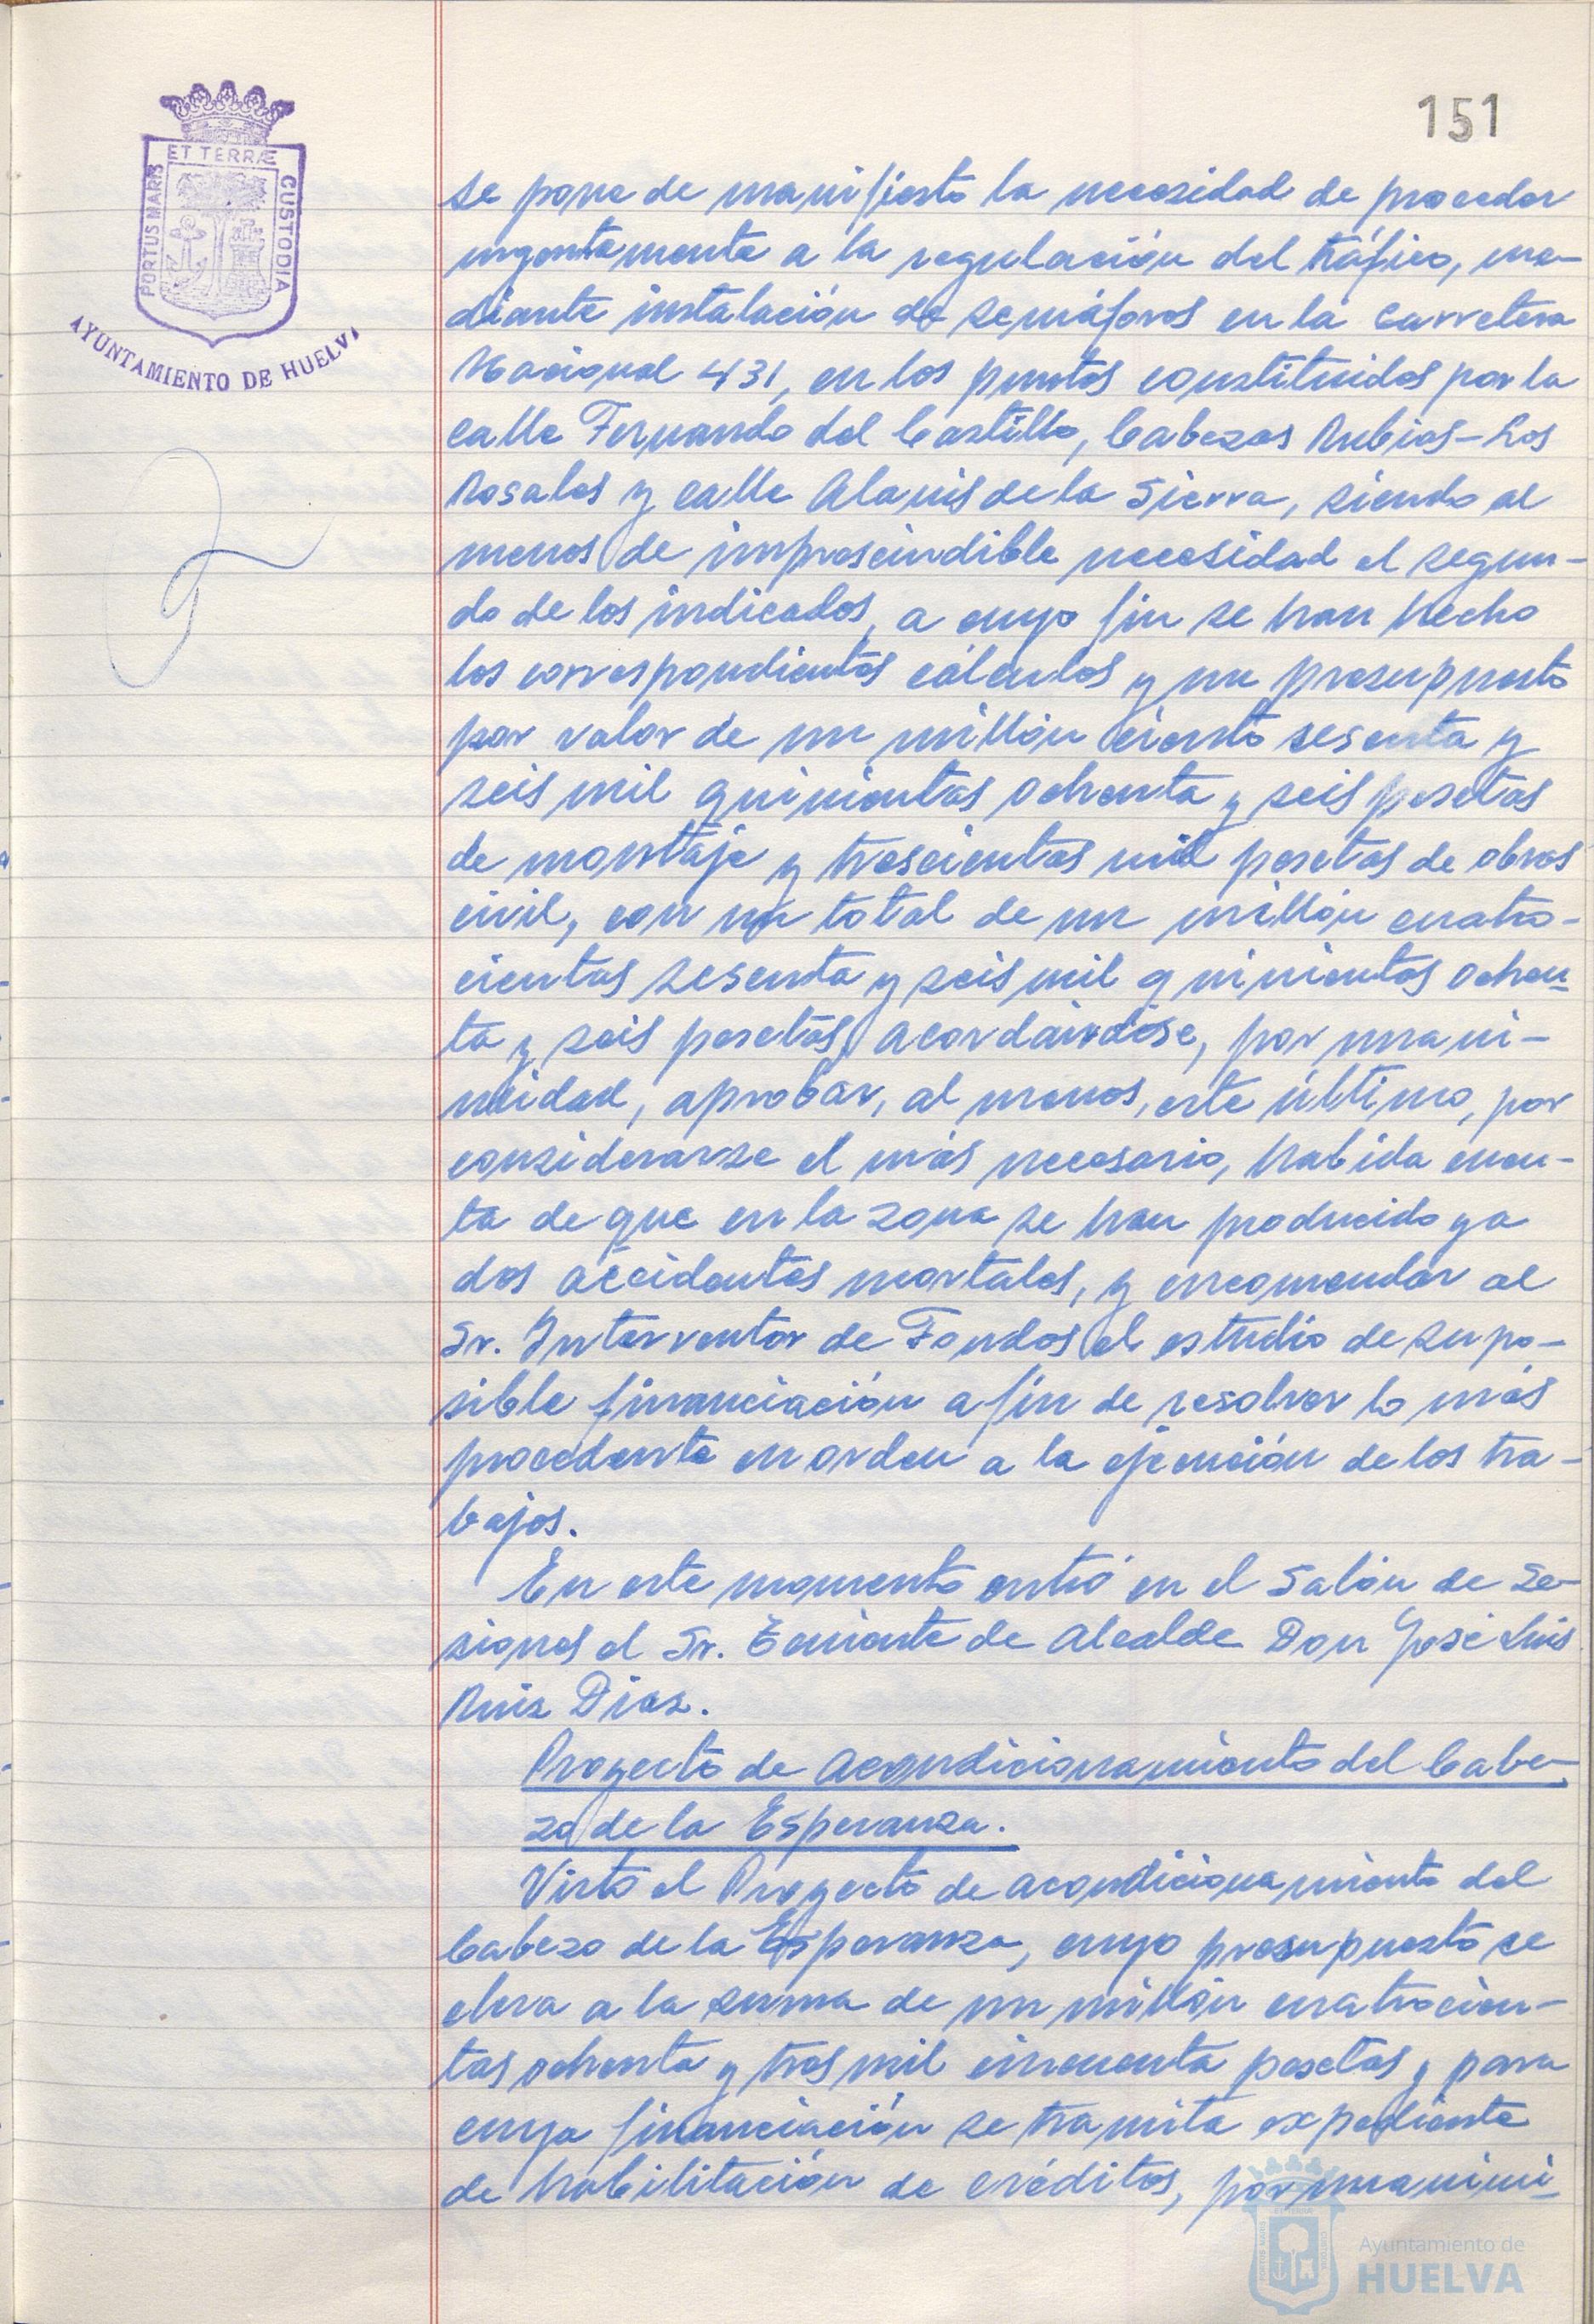 151
ET TERRÆ
PORTUS MARIS
CUSTODIA
AYUNTAMIENTO DE HUELVA
se pone de manifiesto la necesidad de proceder
urgentemente a la regulación del tráfico, me-
diante instalación de semáforos en la carretera
Nacional 431, en los puntos constituidos por la
calle Fernando del Castillo, Cabezas Rubias-Los
Rosales y calle Alanis de la Sierra, siendo al
menos de imprescindible necesidad el segun-
do de los indicados, a cuyo fin se han hecho
los correspondientes cálculos y un presupuesto
por valor de un millón ciento sesenta y
seis mil quinientas ochenta y seis pesetas
de montaje y trescientas mil pesetas de obras
civil, con un total de un millón cuatro-
cientas sesenta y seis mil quinientas ochen-
ta y seis pesetas, acordándose, por unani-
midad, aprobar, al menos, este último, por
considerarse el más necesario, habida cuen-
ta de que en la zona se han producido ya
dos accidentes mortales, y encomendar al
Sr. Interventor de Fondos el estudio de su po-
sible financiación a fin de resolver lo más
procedente en orden a la ejecución de los tra-
bajos.
En este momento entró en el Salón de Se-
siones el Sr. Teniente de Alcalde Don José Luis
Ruiz Diaz.
Proyecto de acondicionamiento del Cabe-
zo de la Esperanza.
Visto el Proyecto de acondicionamiento del
Cabezo de la Esperanza, cuyo presupuesto se
eleva a la suma de un millón cuatrocien-
tas ochenta y tres mil cincuenta pesetas y para
cuya financiación se tramita expediente
de habilitación de créditos, por unanimi-
Ayuntamiento de
HUELVA